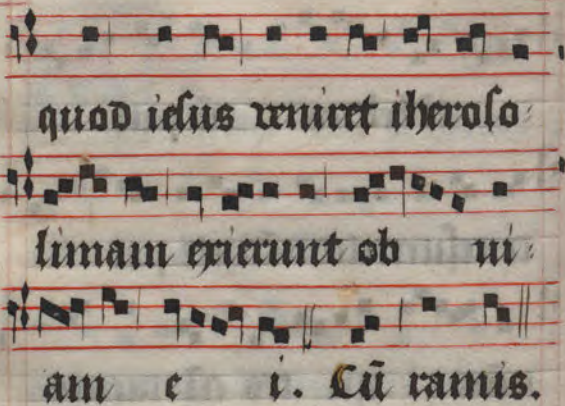 quod iesus veniret iheroso
limam exierunt ob ui
am e i. Cū ramis.